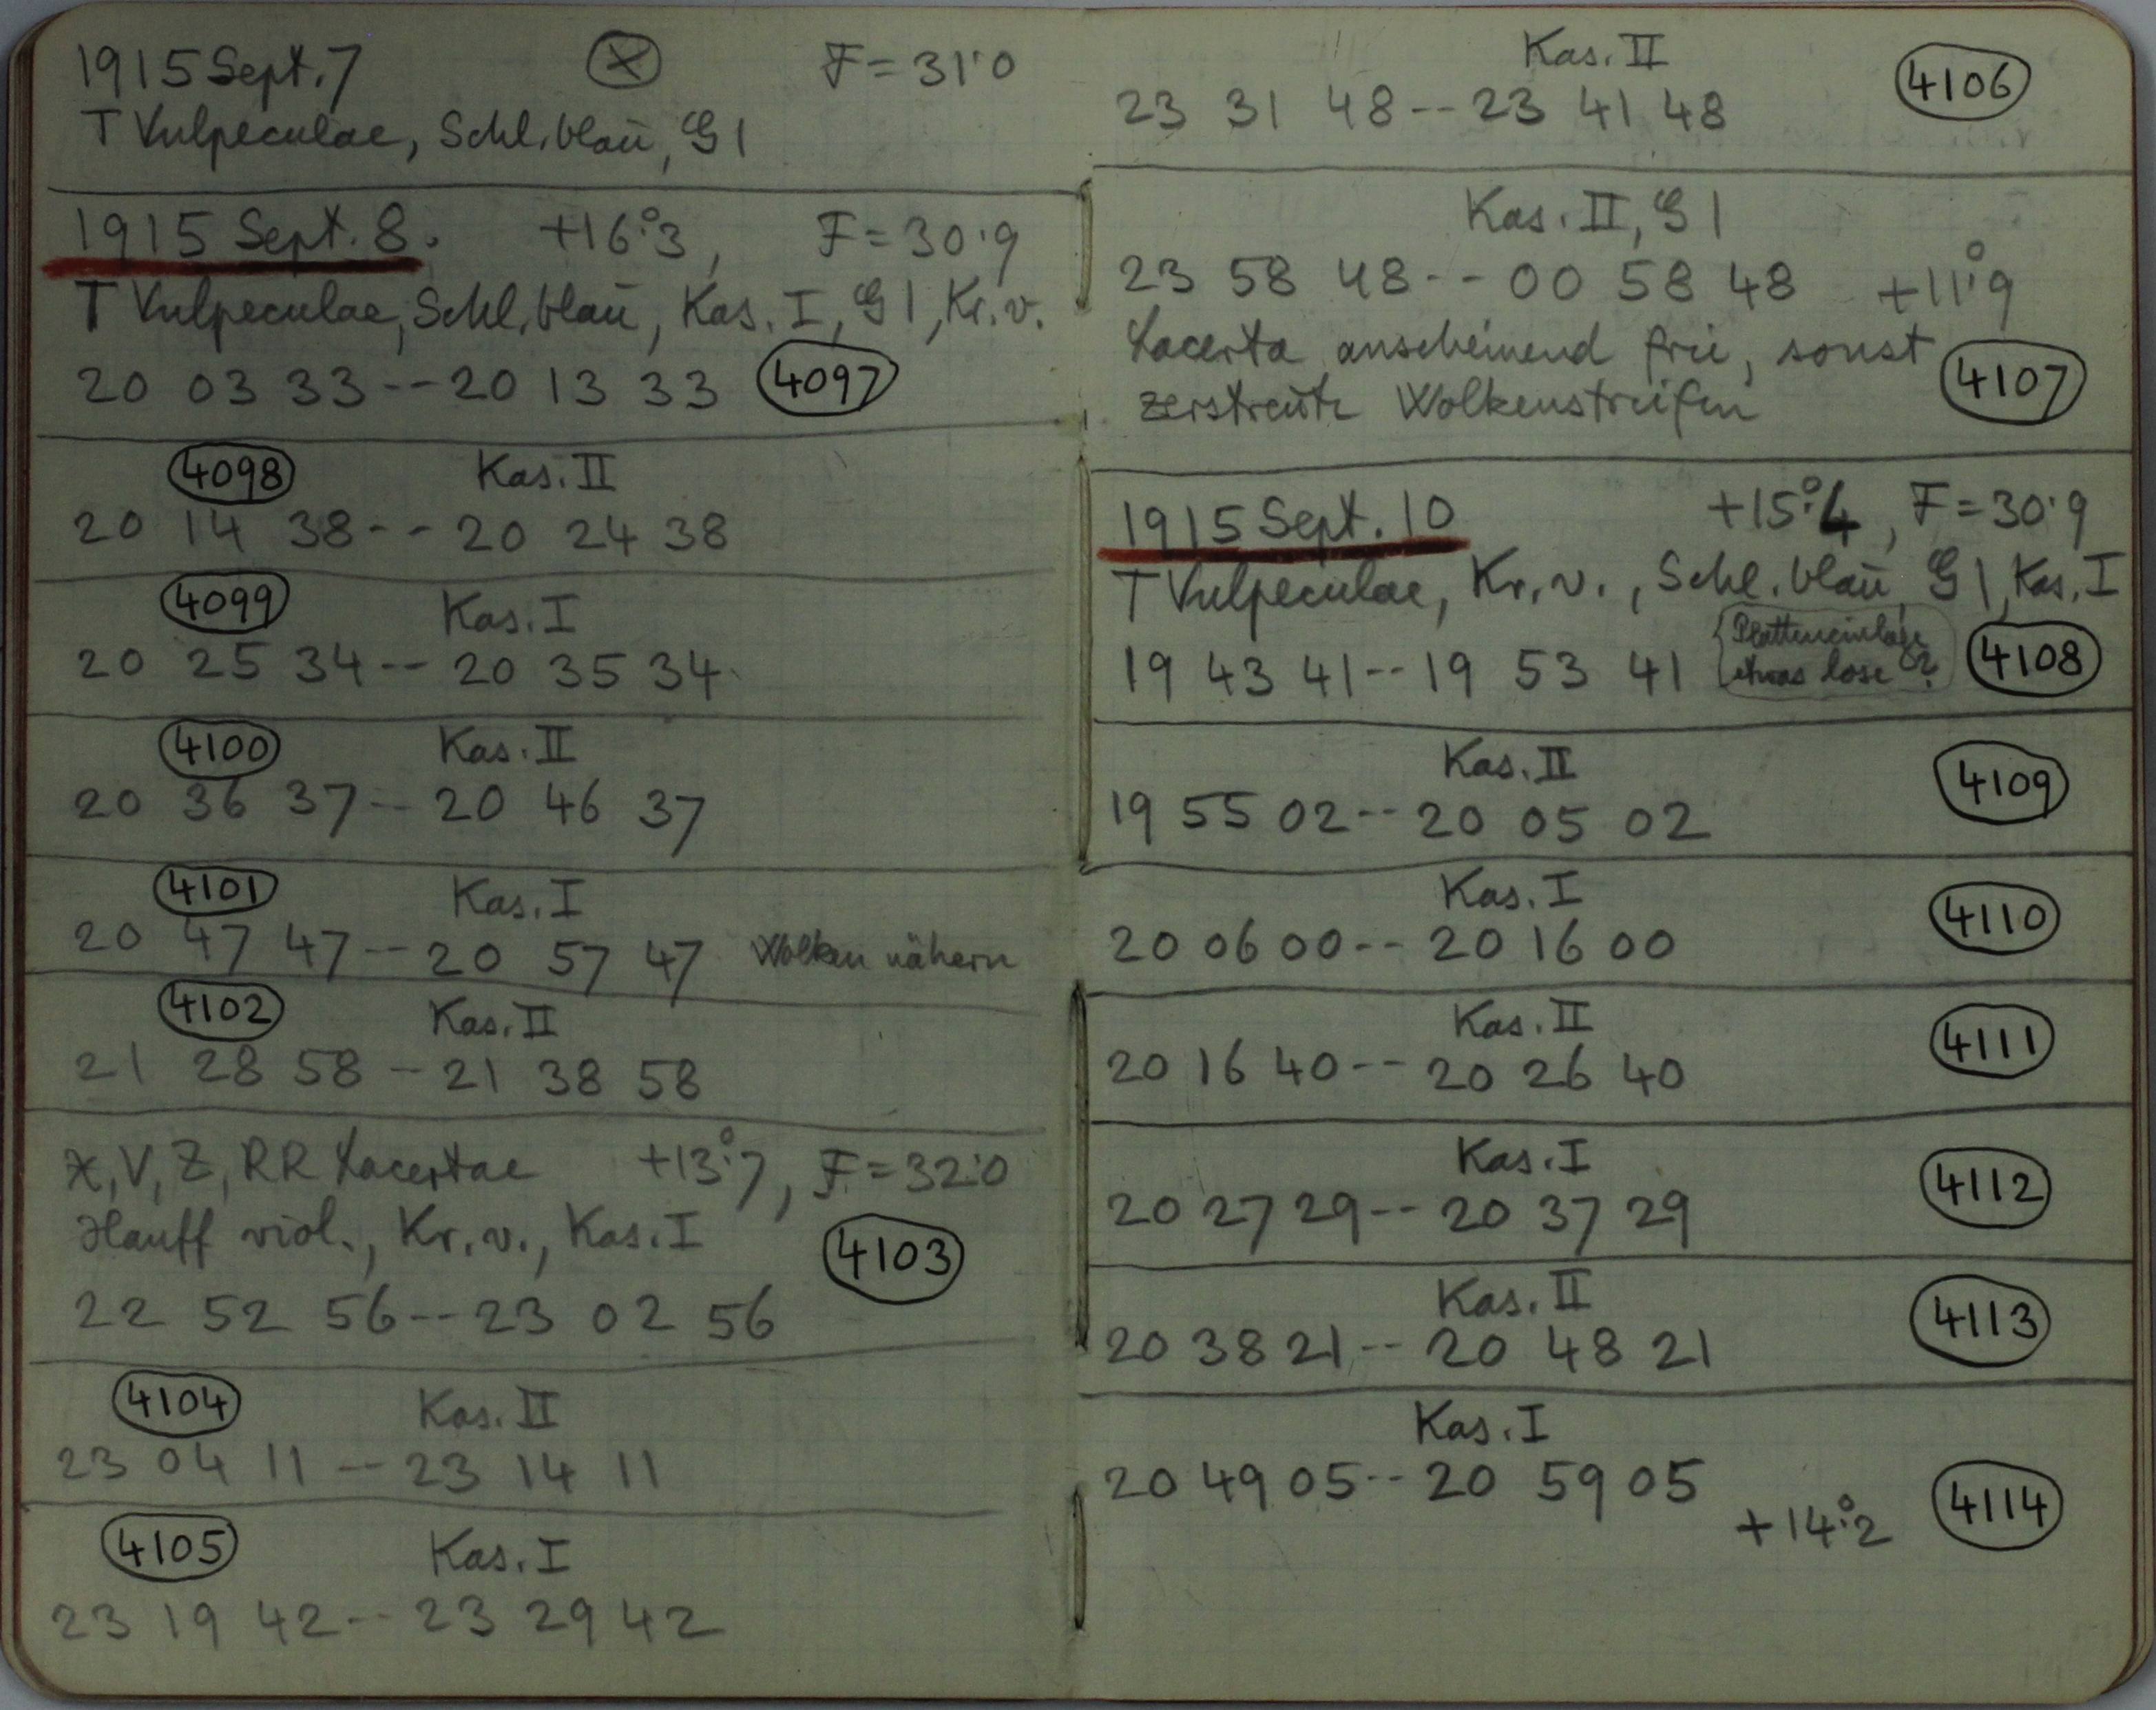 1915 Sept. 7 ⊗ F = 31.0
T Vulpeculae, Schl. blau, G 1
1915 Sept. 8. +16°.3, F = 30.9
T Vulpeculae, Schl. blau, Kas. I, G 1, Kr. v.
20 03 33 -- 20 13 33 4097
4098 Kas. II
20 14 38 -- 20 24 38
4099 Kas. I
20 25 34 -- 20 35 34
4100 Kas. II
20 36 37 -- 20 46 37
4101 Kas. I
20 47 47 -- 20 57 47 Wolken nähern
4102 Kas. II
21 28 58 -- 21 38 58
X, V, Z, RR Lacertae +13°.7, F = 32.0
Hauff viol., Kr. v., Kas. I 4103
22 52 56 -- 23 02 56
4104 Kas. II
23 04 11 -- 23 14 11
4105 Kas. I
23 19 42 -- 23 29 42
Kas. II 4106
23 31 48 -- 23 41 48
Kas. II, G 1
23 58 48 -- 00 58 48 +11°.9
Lacerta anscheinend frei, sonst 4107
zerstreute Wolkenstreifen
1915 Sept. 10 +15°.4, F = 30.9
T Vulpeculae, Kr. v., Schl. blau, G 1, Kas. I
19 43 41 -- 19 53 41 4108
Platteneinlage
etwas lose?
Kas. II 4109
19 55 02 -- 20 05 02
Kas. I 4110
20 06 00 -- 20 16 00
Kas. II 4111
20 16 40 -- 20 26 40
Kas. I 4112
20 27 29 -- 20 37 29
Kas. II 4113
20 38 21 -- 20 48 21
Kas. I
20 49 05 -- 20 59 05
+14°.2 4114